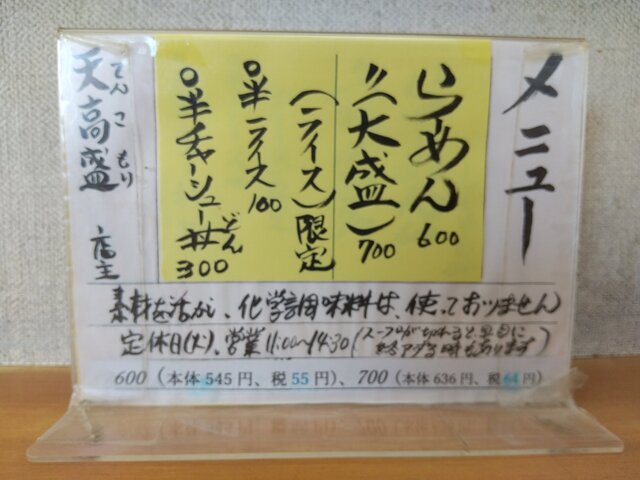 メニュー
らーめん 600
〃(大盛) 700
(ライス)限定
○半ライス 100
○半チャーシュー丼 どん 300
天高盛 てんこもり 店主
素材を活かし、化学調味料は、使っておりません
定休日(火)、営業11:00〜14:30(スープが切れると早目に
終了する時もあります)
600(本体545円、税55円)、700(本体636円、税64円)